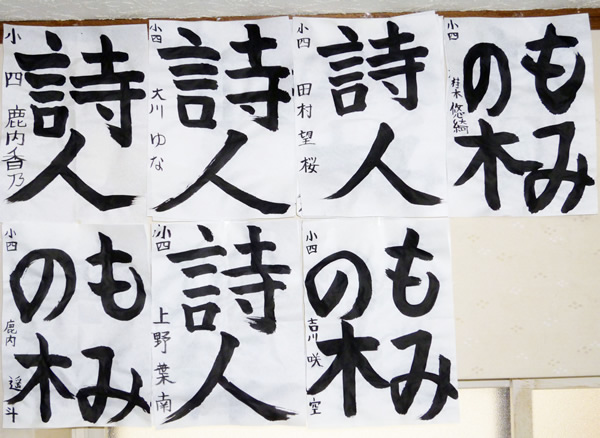 詩人
小四 鹿内香乃
詩人
小四 大川ゆな
詩人
小四 田村望桜
もみの木
小四 悠綺
もみの木
小四 鹿内遥斗
詩人
小四 上野葉南
もみの木
小四 吉川咲空